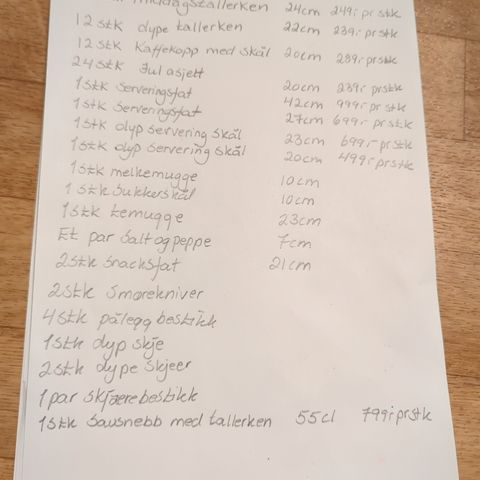 middagstallerken 24cm 249,- pr stk
12 stk dype tallerken 22cm 239,- pr stk
12 stk Kaffekopp med skål 20cm 289,- pr stk
24 stk Jul asjett 20cm 239,- pr stk
1 stk serveringsfat 42cm 999,- pr stk
1 stk serveringsfat 27cm 699,- pr stk
1 stk dyp servering skål 23cm 699,- pr stk
1 stk dyp servering skål 20cm 499,- pr stk
1 stk melkemugge 10cm
1 stk sukkerskål 10cm
1 stk temugge 23cm
Et par salt og peppe 7cm
2 stk snacksfat 21cm
2 stk smørekniver
4 stk pålegg bestikk
1 stk dyp skje
2 stk dype skjeer
1 par skjærebestikk
1 stk sausnebb med tallerken 55cl 799,- pr stk